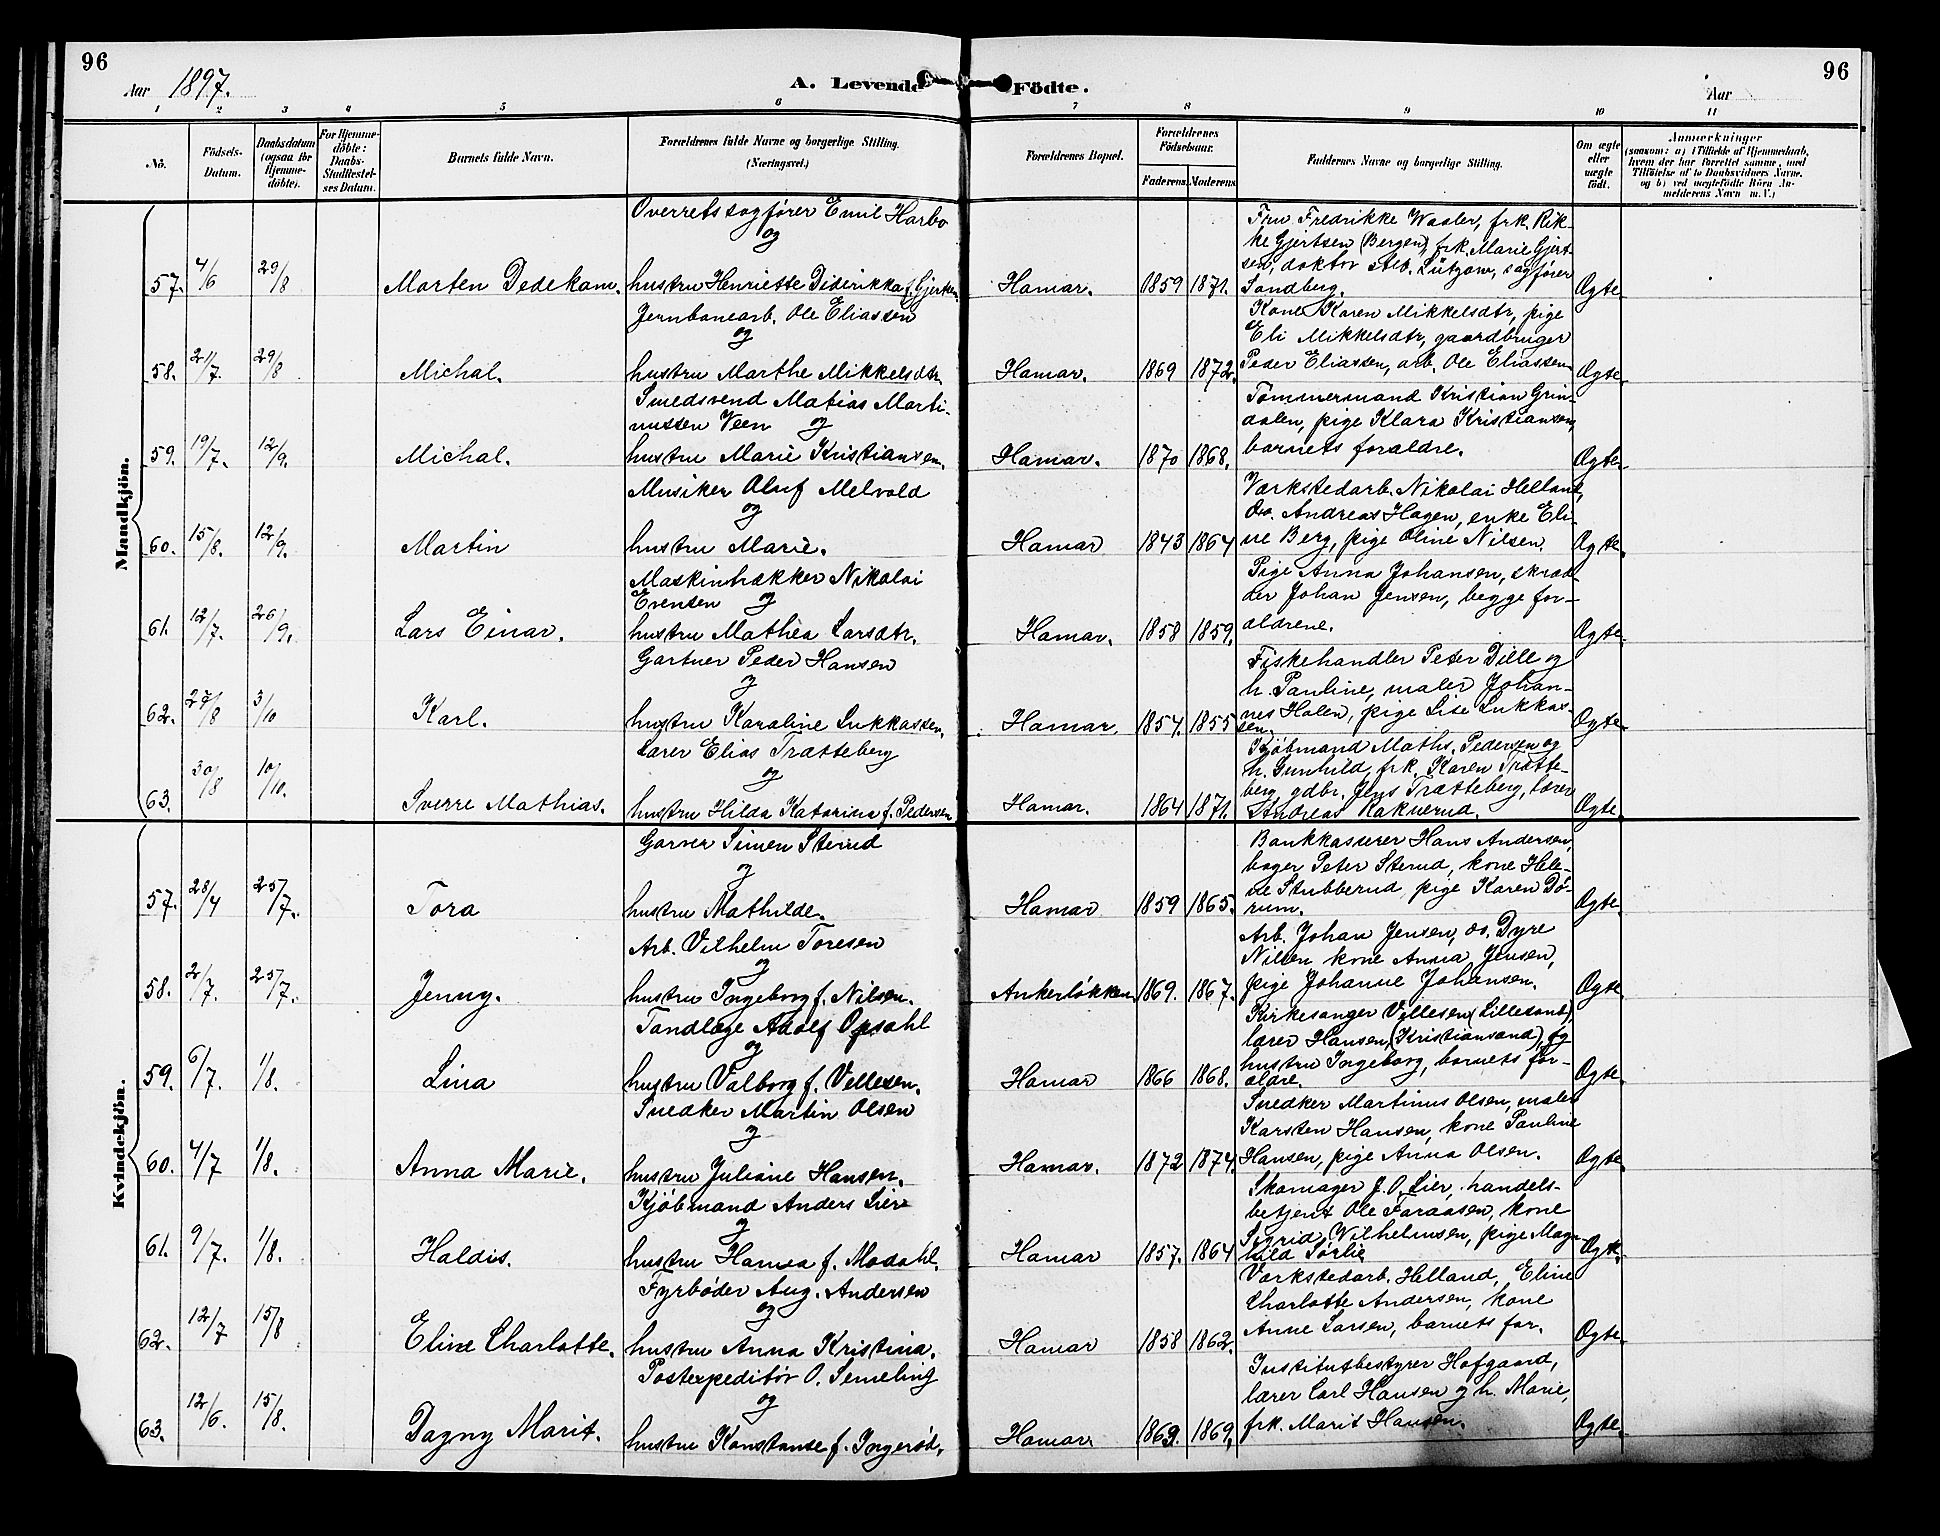 96
Aar 1897.
A. Levende Födte.
Aar
96
1 2 3 4 5 6 7 8 9 10 11
No.
Födsels-Datum.
Daabsdatum (ogsaa for Hjemme-döbte).
For Hjemme-döbte: Daabs-Stadfæstel-ses Datum.
Barnets fulde Navn.
Forældrenes fulde Navne og borgerlige Stilling. (Næringsvei.)
Forældrenes Bopæl.
Forældrenes Födselsaar.
Faderens. Moderens.
Faddernes Navne og borgerlige Stilling.
Om ægte eller uægte født.
Anmærkninger
(saasom: a) i Tilfælde af Hjemmedaab, hvem der har forrettet samme, med Tilföielse af to Daabsvidners Navne, og b) ved uægtefödte Börn An-melderens Navn m. V.)
Mandkjön.
Overretssagfører Emil Harbo
og
57. 4/6 29/8 Morten Dedekam. hustru Henriette Diderikka f. Gjertsen Hamar. 1859 1871. Ægte.
Fru Fredrikke Waaler, frk. Rik-
ke Gjertsen (Bergen), frk. Marie Gjert-
sen, doktor Alb. Lützow, sagfører
Sandberg.
Jernbanearb. Ole Eliassen
og
58. 21/7. 29/8 Michal. hustru Marthe Mikkelsdtr. Hamar. 1869 1872. Ægte.
Kone Karen Mikkelsdtr, pige
Eli Mikkelsdtr, gaardbruger
Peder Eliassen, arb. Ole Eliassen
Smedsvend Matias Marti-
nussen Veen og
59. 19/7. 12/9. Michal. hustru Marie Kristiansen. Hamar. 1870 1868. Ægte.
Tømmermand Kristian Grin-
dalen, pige Klara Kristiansen,
barnets forældre.
Musiker Oluf Melvold
og
60. 15/8. 12/9. Martin hustru Marie. Hamar 1843 1864 Ægte.
Værkstedarb. Nikolai Helland,
Do. Andreas Hagen, enke Eli-
ne Berg, pige Oline Nilsen.
Maskintrækker Nikolai
Evensen og
61. 12/7. 26/9. Lars Einar. hustru Mathea Larsdtr. Hamar. 1858 1859. Ægte.
Pige Anna Johansen, skræd-
der Johan Jensen, begge for-
ældrene.
Gartner Peder Hansen
og
62. 27/8 3/10 Karl. hustru Karoline Lukkassen. Hamar. 1854. 1855 Ægte.
Fiskehandler Peter Dille og
h. Pauline, maler Johan-
nes Holen, pige Lise Lukkas-
sen.
Lærer Elias Trætteberg
og
63. 30/8 10/10. Sverre Mathias. hustru Hilda Katarina f. Pedersen Hamar. 1864 1871. Ægte.
Kjøbmand Maths. Pedersen og
h. Gunhild, frk. Karen Trætte-
berg, gdbr. Jens Trætteberg, lærer
Andreas Raknerud.
Kvindekjön.
Garver Simen Sterud
og
57. 28/4 25/7. Tora hustru Mathilde. Hamar 1859 1865. Ægte.
Bankkasserer Hans Andersen,
bager Peter Sterud, kone Hele-
ne Stubberud, pige Karen Dø-
rum.
Arb. Vilhelm Toresen
og
58. 2/7. 25/7. Jenny. hustru Ingeborg f. Nilsen. Ankerløkken 1869. 1867. Ægte
Arb. Johan Jensen, do. Dyre
Nilsen kone Anna Jensen,
pige Johanne Johansen.
Tandlæge Adolf Opsahl
og
59. 6/7. 1/8. Lina hustru Valborg f. Vellesen. Hamar 1866 1868. Ægte.
Kirkesanger Vellesen (Lillesand),
lærer Hansen, (Kristiansand), og
hustru Ingeborg, barnets for-
ældre.
Snedker Martin Olsen
og
60. 4/7 1/8. Anna Marie. hustru Juliane Hansen. Hamar. 1872 1874. Ægte.
Snedker Martinus Olsen, maler
Karsten Hansen, kone Pauline
Hansen, pige Anna Olsen.
Kjøbmand Anders Lier
og
61. 9/7. 1/8. Haldis. hustru Hanna f. Modahl. Hamar 1857. 1864 Ægte.
Skomager J. O. Lier, handels-
betjent Ole Faraasen, kone
Sigrid Wilhelmsen, pige Mag-
nhild Sørlie
Fyrbøder Aug. Andersen
og
62. 12/7 15/8 Eline Charlotte. hustru Anna Kristina. Hamar 1858 1862. Ægte.
Værkstedarb. Helland, Eline
Charlotte Andersen, kone
Anne Larsen, barnets for.
Postexpeditør O. Semeling
og
63. 12/6. 15/8. Dagny Marit. hustru Konstanse f. Ingerød. Hamar 1869. 1869. Ægte.
Institutbestyrer Hofgaard,
lærer Carl Hansen og h. Marie,
frk. Marit Hansen.